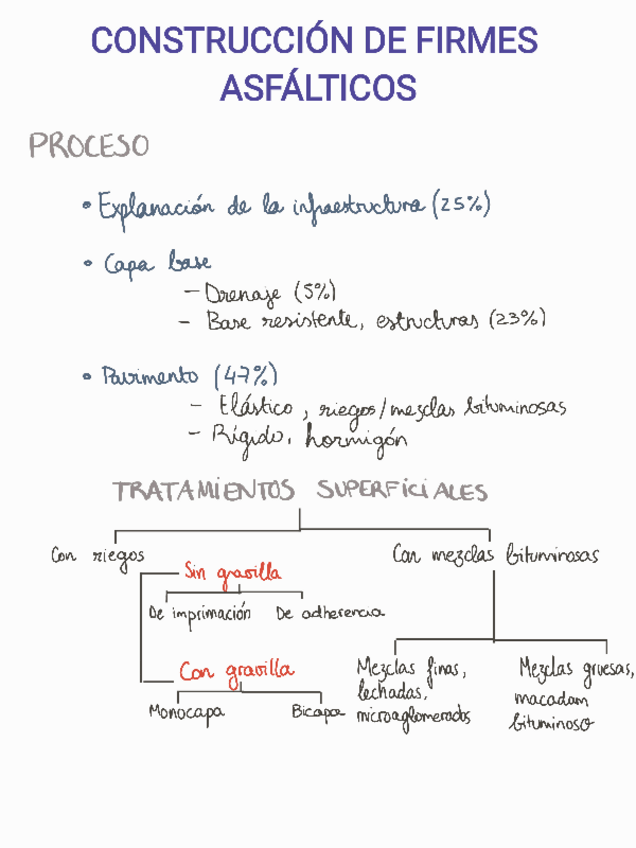 CONSTRUCCIÓN DE FIRMES
ASFÁLTICOS
PROCESO
• Explanación de la infraestructura (25%)
• Capa base
– Drenaje (5%)
– Base resistente, estructuras (23%)
• Pavimento (47%)
– Elástico, riegos/mezclas bituminosas
– Rígido, hormigón
TRATAMIENTOS SUPERFICIALES
Con riegos
Con mezclas bituminosas
Sin gravilla
De imprimación De adherencia
Con gravilla
Monocapa Bicapa
Mezclas finas,
lechadas,
microaglomerados
Mezclas gruesas,
macadam
bituminoso